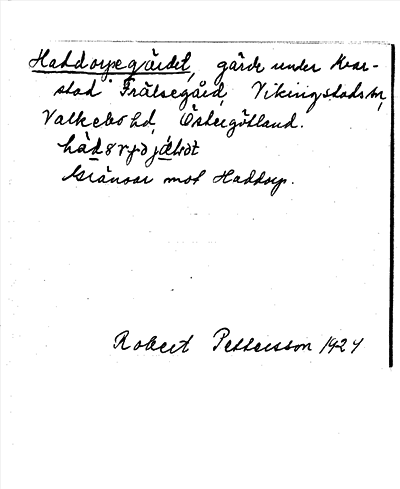 Haddorpegärdet, gärde under Kvar-
stad Frälsegård, Vikingstads sn,
Valkebo hd, Östergötland.
Gränsar mot Haddorp.
Robert Pettersson 1924